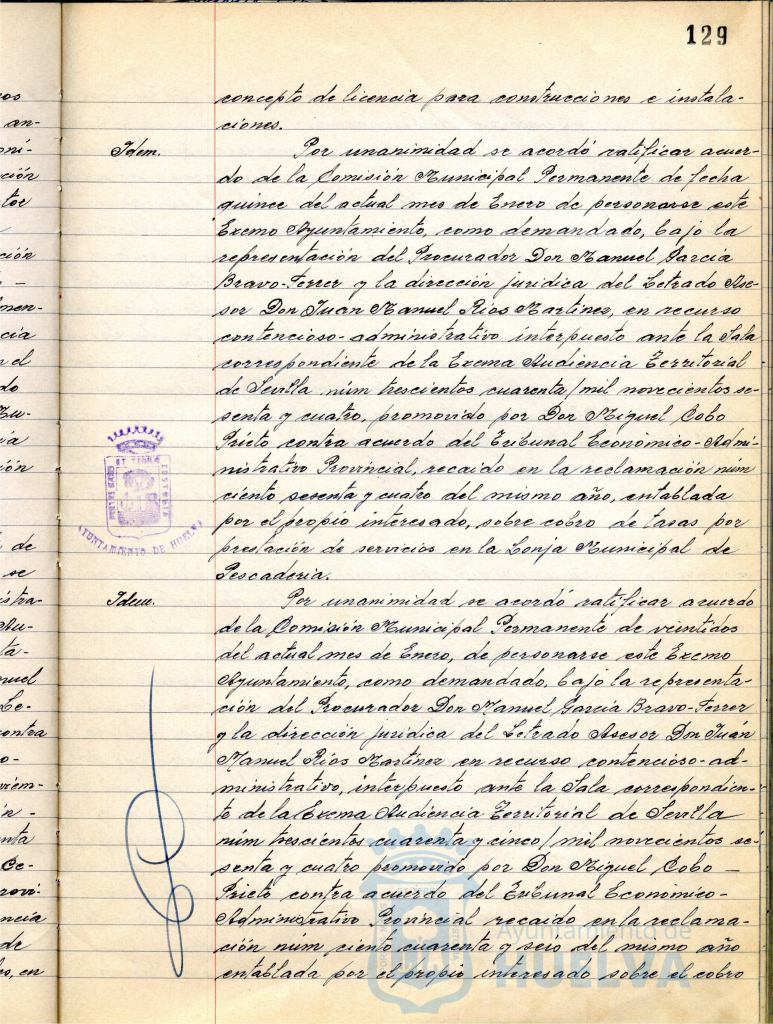 129
concepto de licencia para construcciones e instala-
ciones.
Idem.
Por unanimidad se acordó ratificar acuer-
do de la Comisión Municipal Permanente de fecha
quince del actual mes de Enero de personarse este
Excmo Ayuntamiento, como demandado, bajo la
representación del Procurador Don Manuel García
Bravo-Ferrer y la dirección jurídica del Letrado Ase-
sor Don Juan Manuel Ríos Martínez, en recurso
contencioso-administrativo interpuesto ante la Sala
correspondiente de la Excma Audiencia Territorial
de Sevilla núm trescientos cuarenta/mil novecientos se-
senta y cuatro, promovido por Don Miguel Cobo
Prieto contra acuerdo del Tribunal Económico-Admi-
nistrativo Provincial, recaido en la reclamación núm
ciento sesenta y cuatro del mismo año, entablada
por el propio interesado, sobre cobro de tasas por
prestación de servicios en la Lonja Municipal de
Pescaderia.
AYUNTAMIENTO DE HUELVA
Idem.
Por unanimidad se acordó ratificar acuerdo
de la Comisión Municipal Permanente de veintidos
del actual mes de Enero, de personarse este Excmo
Ayuntamiento, como demandado, bajo la representa-
ción del Procurador Don Manuel García Bravo-Ferrer
y la dirección jurídica del Letrado Asesor Don Juán
Manuel Ríos Martínez en recurso contencioso-ad-
ministrativo, interpuesto ante la Sala correspondien-
te de la Excma Audiencia Territorial de Sevilla
núm trescientos cuarenta y cinco/mil novecientos se-
senta y cuatro promovido por Don Miguel Cobo —
Prieto contra acuerdo del Tribunal Económico-
Administrativo Provincial recaido en la reclama-
ción núm ciento cuarenta y seis del mismo año
entablada por el propio interesado sobre el cobro
Ayuntamiento de
HUELVA